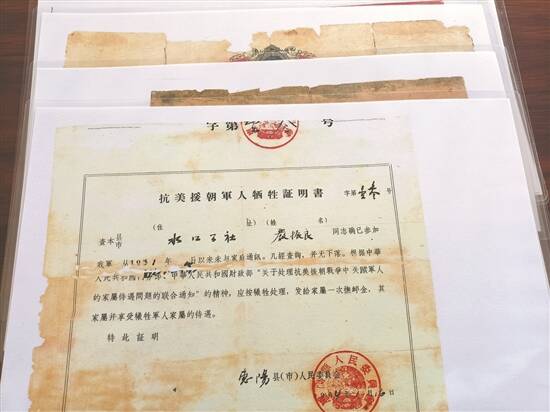 字第 号
抗美援朝軍人牺牲証明書 字第壹叁号
(住 址) (姓 名)
查本县市 水口公社 同志确已参加
我軍 从1951年 月以来未与家庭通訊。几經查詢，并无下落。根据中華
人民共和国 中華人民共和国財政部“关于处理抗美援朝战爭中失踪軍人
的家屬待遇問題的联合通知”的精神，应按犧牲处理，发給家屬一次撫卹金，其
家屬并享受犧牲軍人家屬的待遇。
特此証明
惠陽县(市)人民委員会